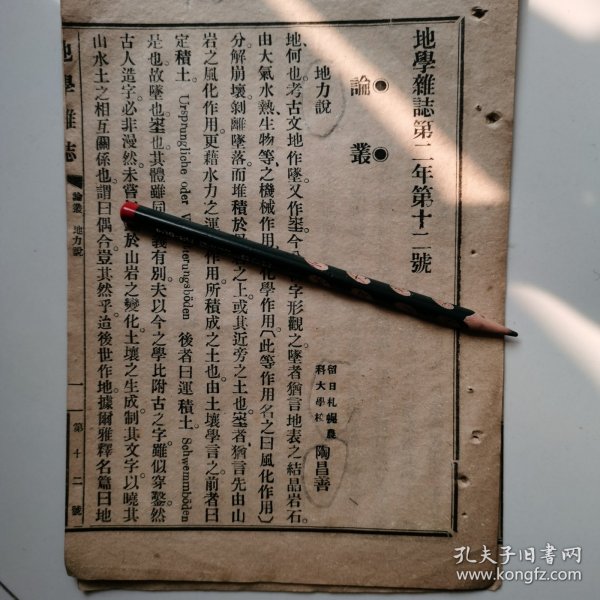 地學雜誌第二年第十二號
論叢
地力說
留日札幌農
科大學校
陶昌善
地何也考古文地作墜又作埊今
字形觀之墜者猶言地表之結晶岩石
由大氣水熱生物等之機械作用
化學作用（此等作用名之曰風化作用）
分解崩壞剝離墜落而堆積於
之上或其近旁之土也埊者猶言先由山
岩之風化作用更藉水力之運
作用所積成之土也由土壤學言之前者曰
定積土 Ursprungliche oder
erungsböden 後者曰運積土 Schwemmböden
是也故墜也埊也其體雖同
義有別夫以今之學比附古之字雖似穿鑿然
古人造字必非漫然未嘗
於山岩之變化土壤之生成制其文字以曉其
山水土之相互關係也謂曰偶合豈其然乎迨後世作地據爾雅釋名篇曰地
地學雜誌
論叢 地力說
一
第十二號
孔夫子旧书网
www.kongfz.com